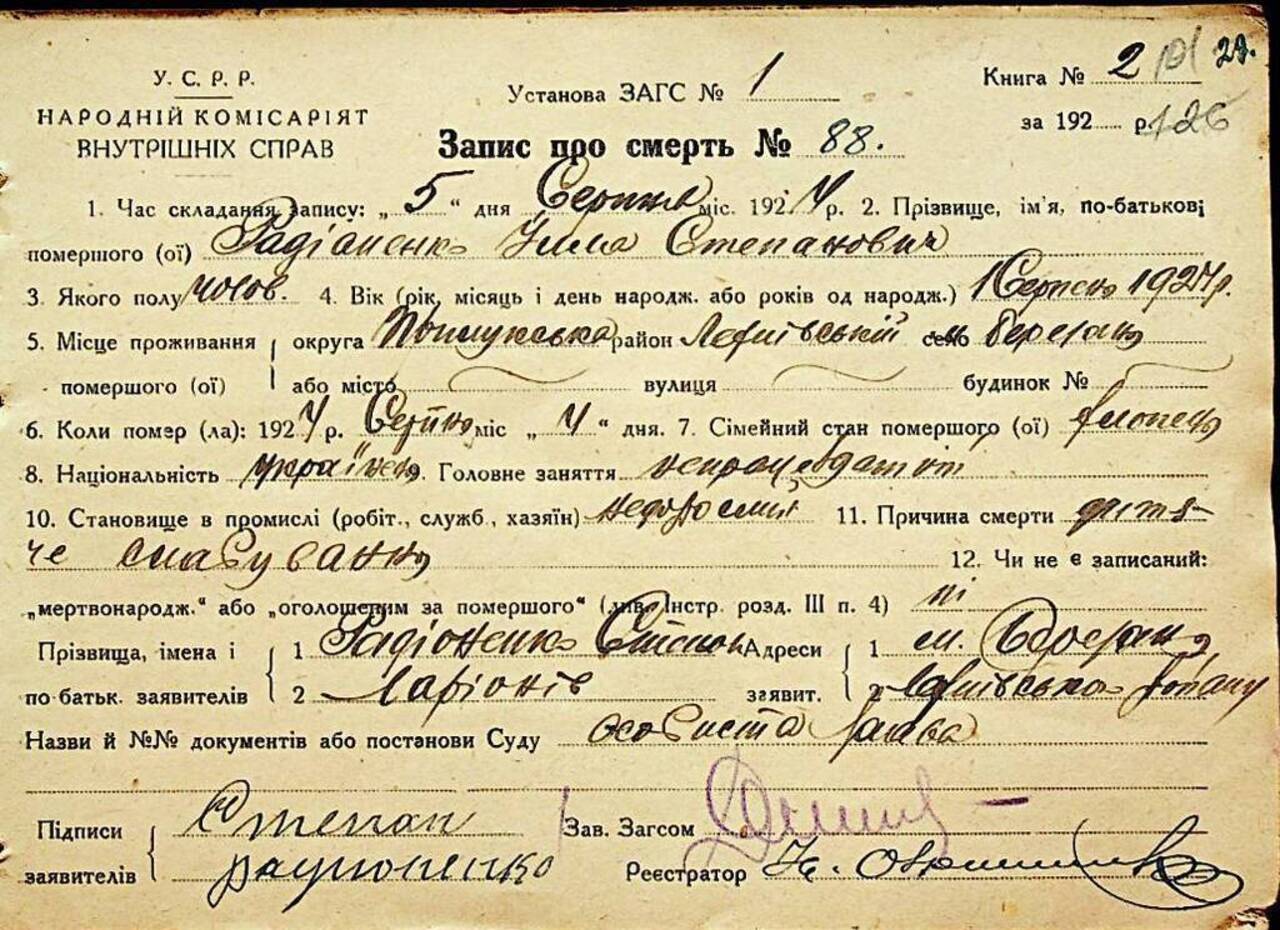 У. С. Р. Р.
НАРОДНІЙ КОМІСАРІЯТ
ВНУТРІШНІХ СПРАВ
Установа ЗАГС № 1
Книга № 2 29.
за 192 р. 126
Запис про смерть № 88.
1. Час складання запису: „5“ дня Серпня міс. 1924 р. 2. Прізвище, ім'я, по-батькові
помершого (ої) Степанович
3. Якого полу чолов. 4. Вік (рік, місяць і день народж. або років од народж.) 1 Серпня 1924 р.
5. Місце проживання округа Прилуцька район село
помершого (ої) або місто вулиця будинок №
6. Коли помер (ла): 1924 р. Серпня міс „4“ дня. 7. Сімейний стан помершого (ої) хлопець
8. Національність українець 9. Головне заняття
10. Становище в промислі (робіт., служб., хазяїн) 11. Причина смерти дитя-
че слабування
12. Чи не є записаний:
„мертвонародж.“ або „оголошеним за помершого“ (див. Інстр. розд. III п. 4) ні
Прізвища, імена і 1 Радіоненко Степан Адреси 1
по-батьк. заявителів 2 Ларіонів заявит. 2
Назви й №№ документів або постанови Суду особиста заява
Підписи Степан Зав. Загсом
заявителів Радионенко Реєстратор